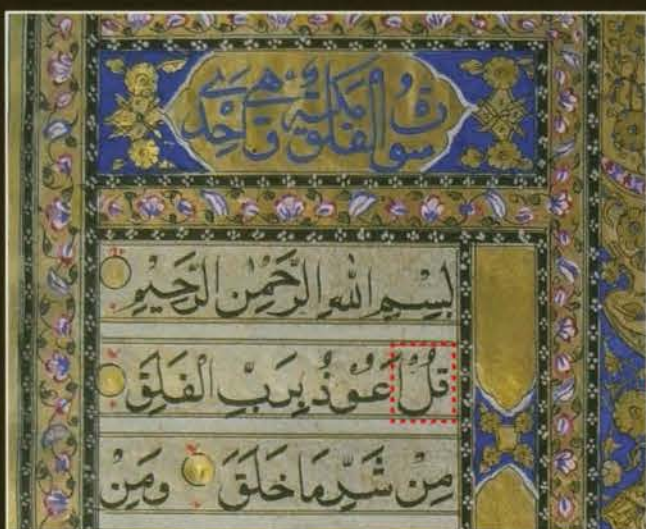 سورة الفلق مكية وهي
بِسْمِ اللهِ الرَّحْمٰنِ الرَّحِيْمِ
قُلْ اَعُوْذُ بِرَبِّ الْفَلَقِ
مِنْ شَرِّ مَا خَلَقَ وَمِنْ